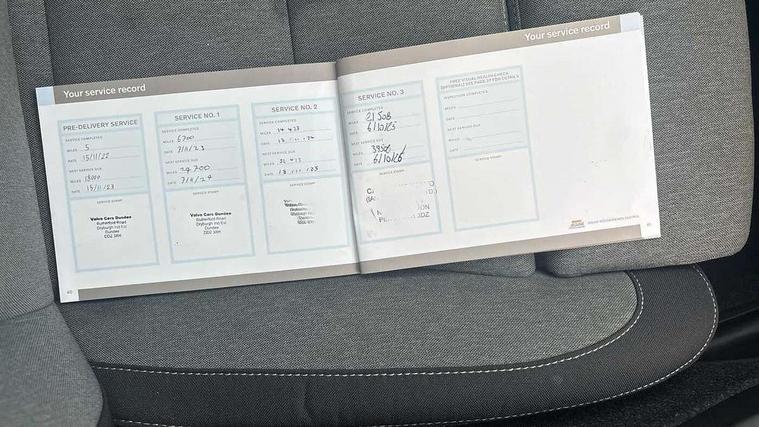 Your service record
Your service record
PRE-DELIVERY SERVICE
SERVICE COMPLETED
MILES 5
DATE 15/11/22
NEXT SERVICE DUE
MILES 18000
DATE 15/11/23
SERVICE STAMP
Volvo Cars Dundee
Rutherford Road
Dryburgh Ind Est
Dundee
DD2 3XH
40
SERVICE NO. 1
SERVICE COMPLETED
MILES 6700
DATE 7/11/23
NEXT SERVICE DUE
MILES 24700
DATE 7/11/24
SERVICE STAMP
Volvo Cars Dundee
Rutherford Road
Dryburgh Ind Est
Dundee
DD2 3XH
SERVICE NO. 2
SERVICE COMPLETED
MILES 14 423
DATE
NEXT SERVICE DUE
MILES
DATE
SERVICE STAMP
SERVICE NO. 3
SERVICE COMPLETED
MILES 21 508
DATE 6/10/25
NEXT SERVICE DUE
MILES
DATE 6/10/26
SERVICE STAMP
FREE VISUAL HEALTH CHECK
(OPTIONAL) SEE PAGE 37 FOR DETAILS
INSPECTION COMPLETED
MILES
DATE
NEXT SERVICE DUE
MILES
DATE
SERVICE STAMP